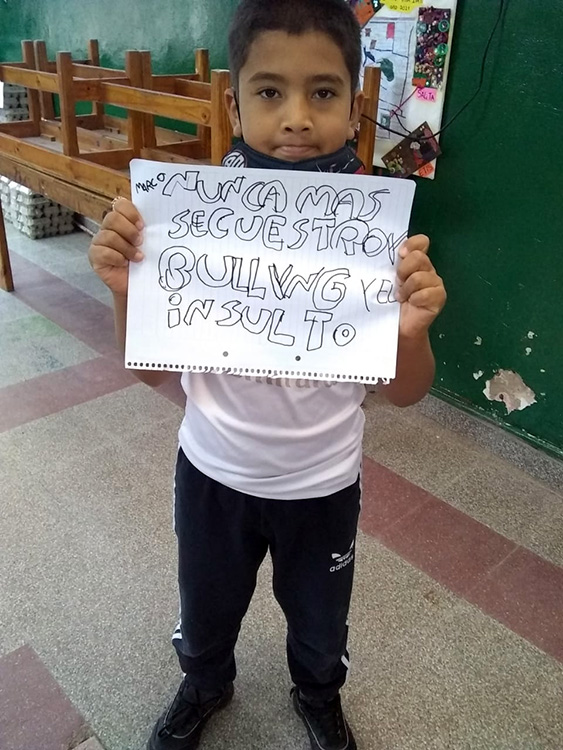 MARCO
NUNCA MAS
SECUESTRO Y
BULLYNG Y EL
iNSULTO
SALTA
adidas